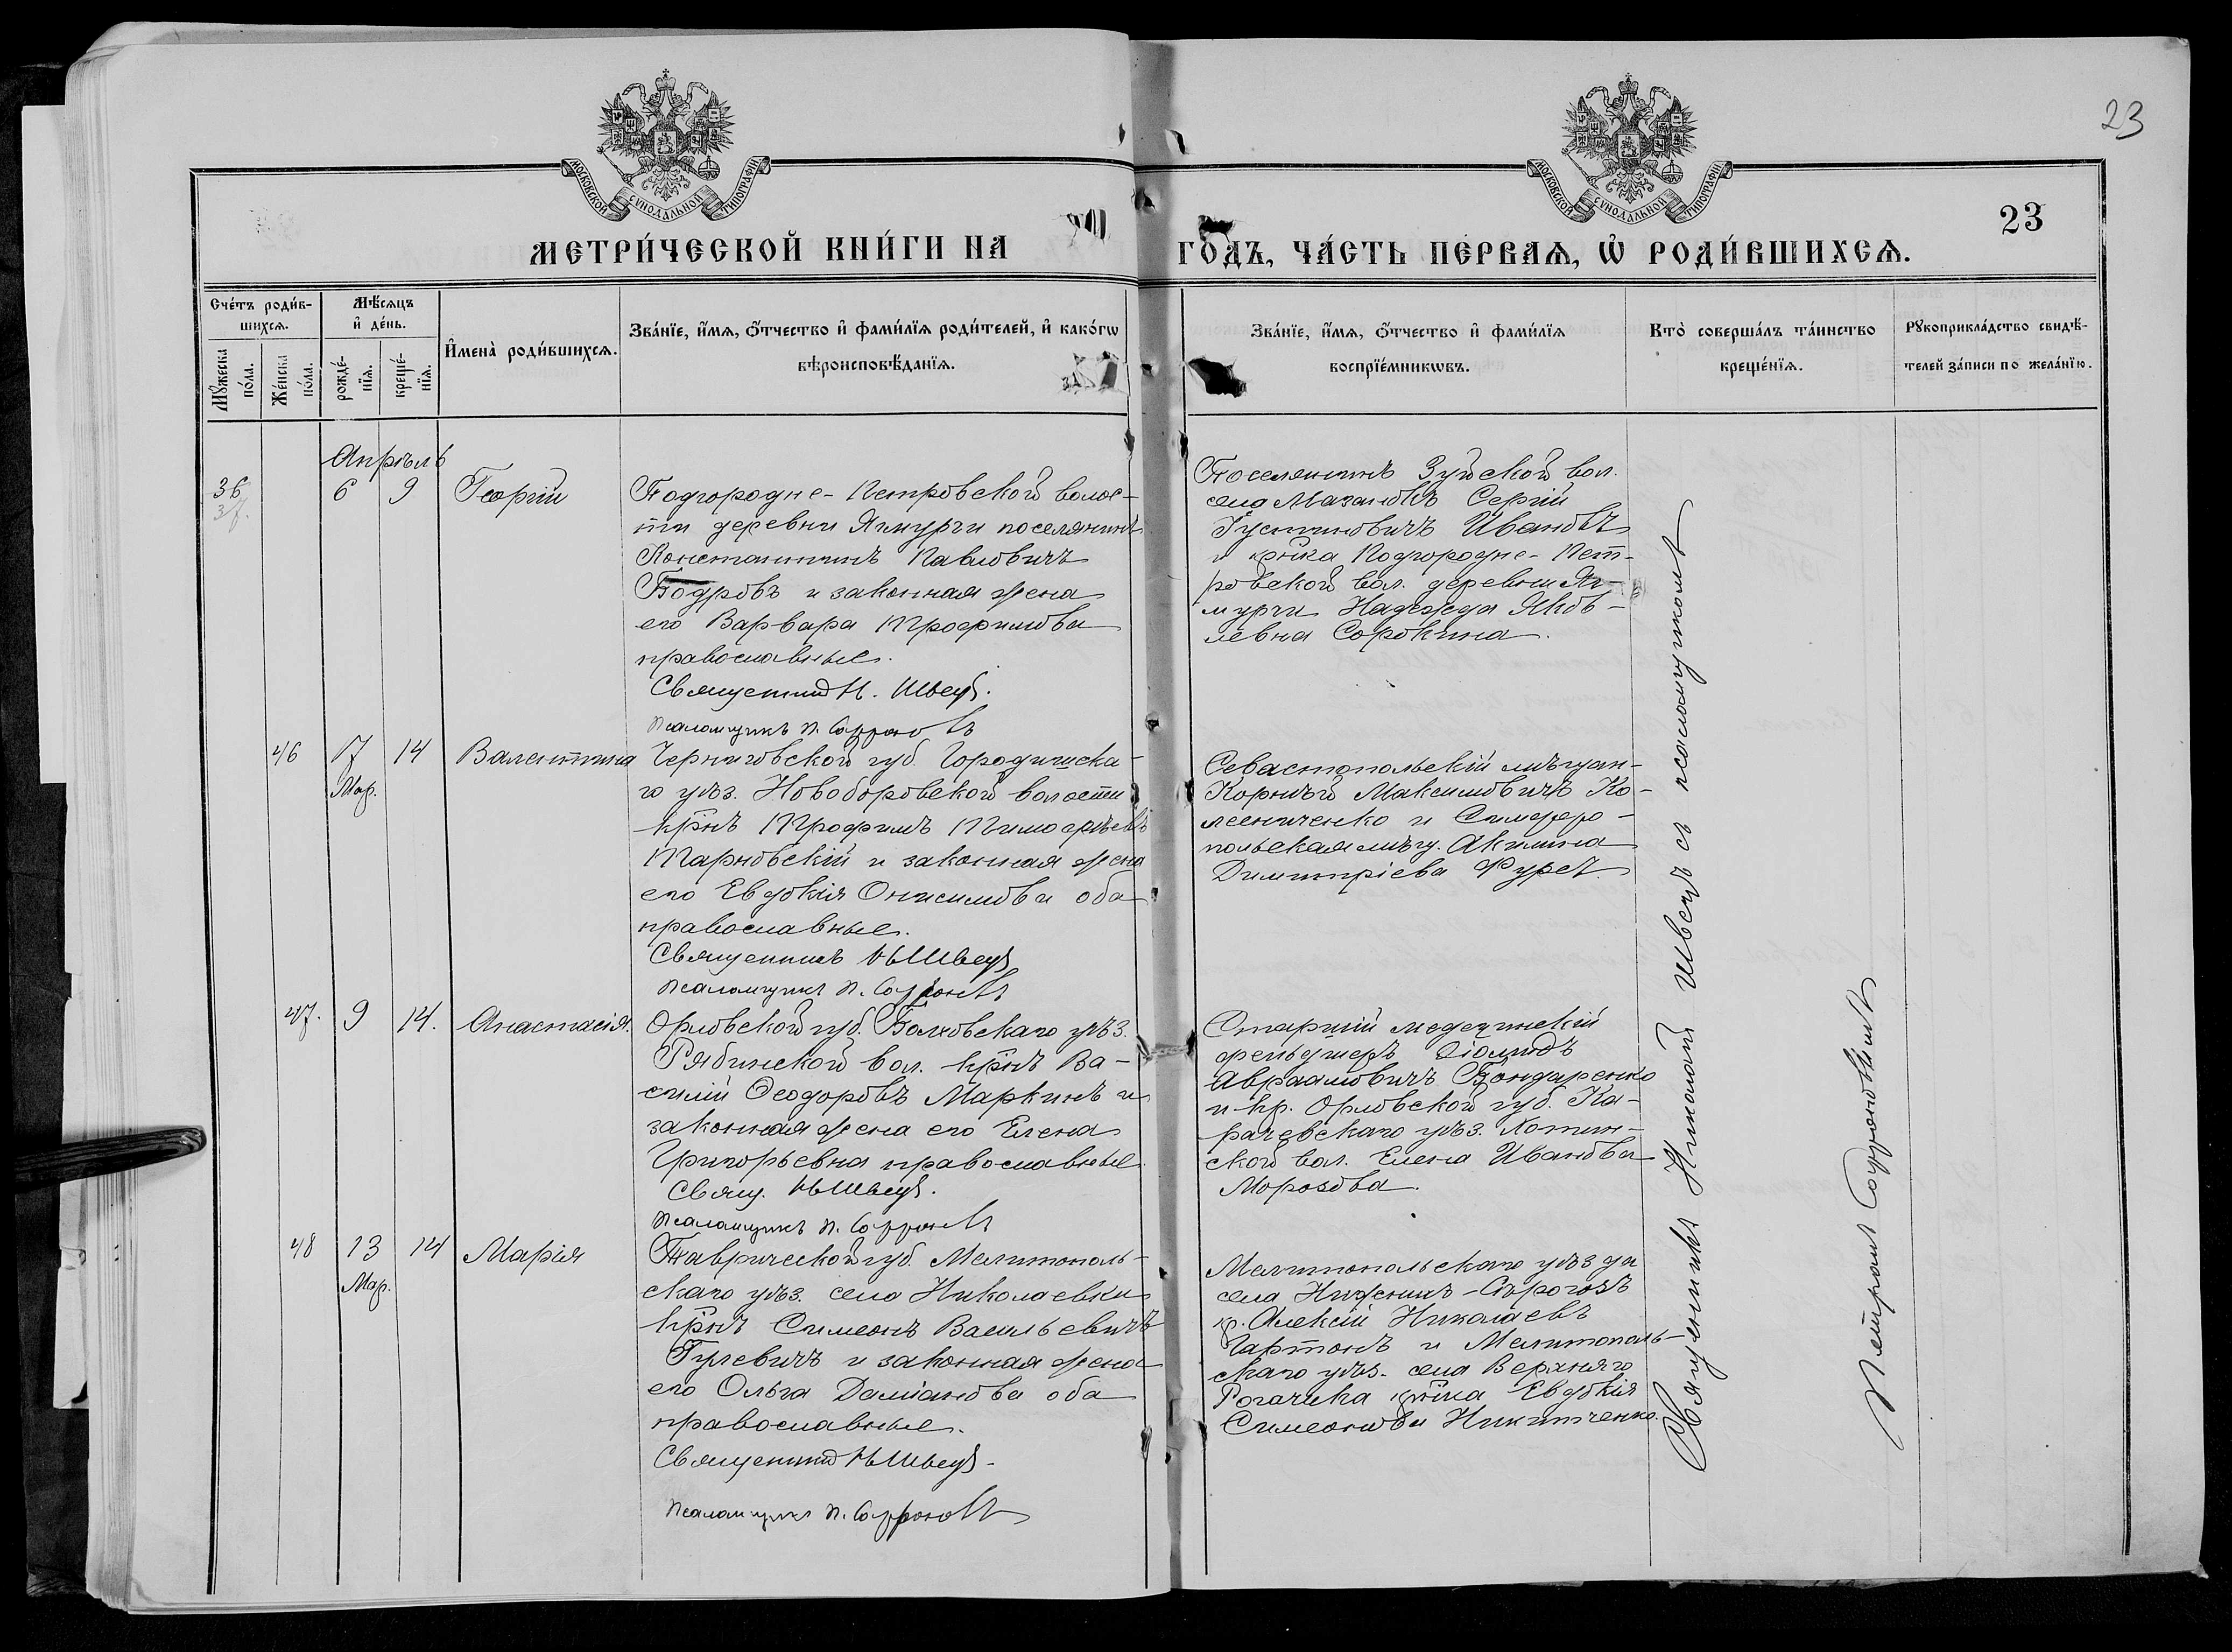 23
МОСКОВСКОЙ СУНОДАЛЬНОЙ ТИПОГРАФІИ
МОСКОВСКОЙ СУНОДАЛЬНОЙ ТИПОГРАФІИ
23
МЕТРИ́ЧЕСКОЙ КНИ́ГИ НА
ГО́ДЪ, ЧА́СТЬ ПЕ́РВАѦ, Ѡ҆ РОДИ́ВШИХСѦ.
Сче́тъ роди́в-
шихсѧ.
Мѣ́сѧцъ
и҆ де́нь.
Мꙋ́жеска
по́ла.
Же́нска
по́ла.
рожде́-
нїѧ.
креще́-
нїѧ.
И҆мена̀ роди́вшихсѧ.
Зва́нїе, и҆́мѧ, ѻ҆́тчество и҆ фами́лїѧ роди́телей, и҆ како́гѡ
вѣроисповѣ́данїѧ.
Зва́нїе, и҆́мѧ, ѻ҆́тчество и҆ фами́лїѧ
воспрїе́мникѡвъ.
Кто̀ соверша́лъ та́инство
креще́нїѧ.
Рꙋкоприкла́дство свидѣ́-
телей за́писи по жела́нїю.
Апрѣль
36
6 9 Георгій
Подгородне-Петровской волос-
ти деревни Ягмурчи поселянинъ
Константинъ Павловичъ
Бодровъ и законная жена
его Варвара Трофимова
православные.
Священник Н. Швецъ.
Псаломщикъ П. Софроновъ
Поселянинъ Зуйской вол.
села Мазановъ Сергій
Іустиновичъ Ивановъ
и кр̃нка Подгородне-Пет-
ровской вол. деревни Яг-
мурчи Надежда Яков-
левна Сорокина.
46 17 14 Валентина
Мар.
Черниговской губ. Городниска-
го уѣз. Новоборовской волости
кр̃нъ Трофимъ Тимофѣевъ
Тарновскій и законная жена
его Евдокія Онисимова оба
православные.
Священникъ Н. Швецъ
Псаломщикъ П. Софроновъ
Севастопольскій мѣщан-
Корнѣй Максимовичъ Ко-
лесниченко и Симферо-
польская мѣщ. Акилина
Димитріева Фурсъ.
47. 9 14. Анастасія.
Орловской губ. Болховскаго уѣз.
Рябинской вол. кр̃нъ Ва-
силій Ѳеодоровъ Маркинъ и
законная жена его Елена
Григорьевна православные.
Свящ. Н. Швецъ.
Псаломщикъ П. Софроновъ
Старшій медецинскій
фельдшеръ Діомидъ
Авраамовичъ Бондаренко
и кр. Орловской губ. Ка-
рачевскаго уѣз. Хотин-
ской вол. Елена Иванова
Морозова.
48 13 14 Марія
Мар.
Таврической губ. Мелитополь-
скаго уѣз. села Николаевки
кр̃нъ Симеонъ Васильевичъ
Гулевичъ и законная жена
его Ольга Даміанова оба
православные.
Священник Н. Швецъ.
Псаломщикъ П. Софроновъ
Мелитопольскаго уѣзда
села Нижнихъ-Сѣрогозъ
кр. Алексій Николаевъ
Чартокъ и Мелитополь-
скаго уѣз. села Верхняго
Рогачика кр̃нка Евдокія
Симеонова Никитченко.
Священникъ Николай Швецъ съ псаломщикомъ
Петромъ Софроновымъ